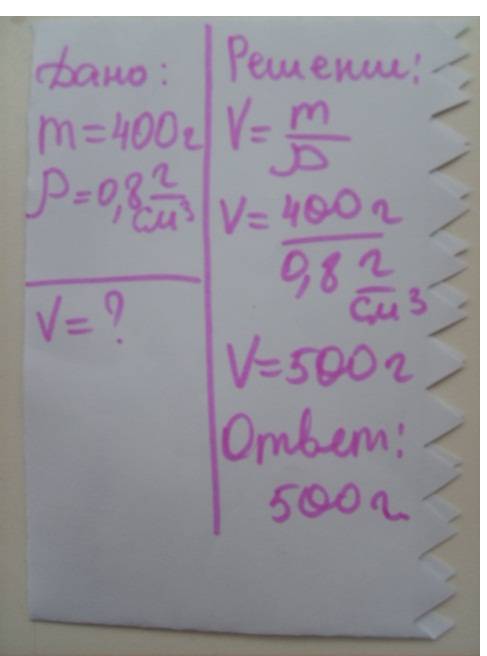 Дано:
m=400г
ρ=0,8 г/см³
V=?
Решение:
V= m/ρ
V= 400г / 0,8 г/см³
V=500г
Ответ:
500г